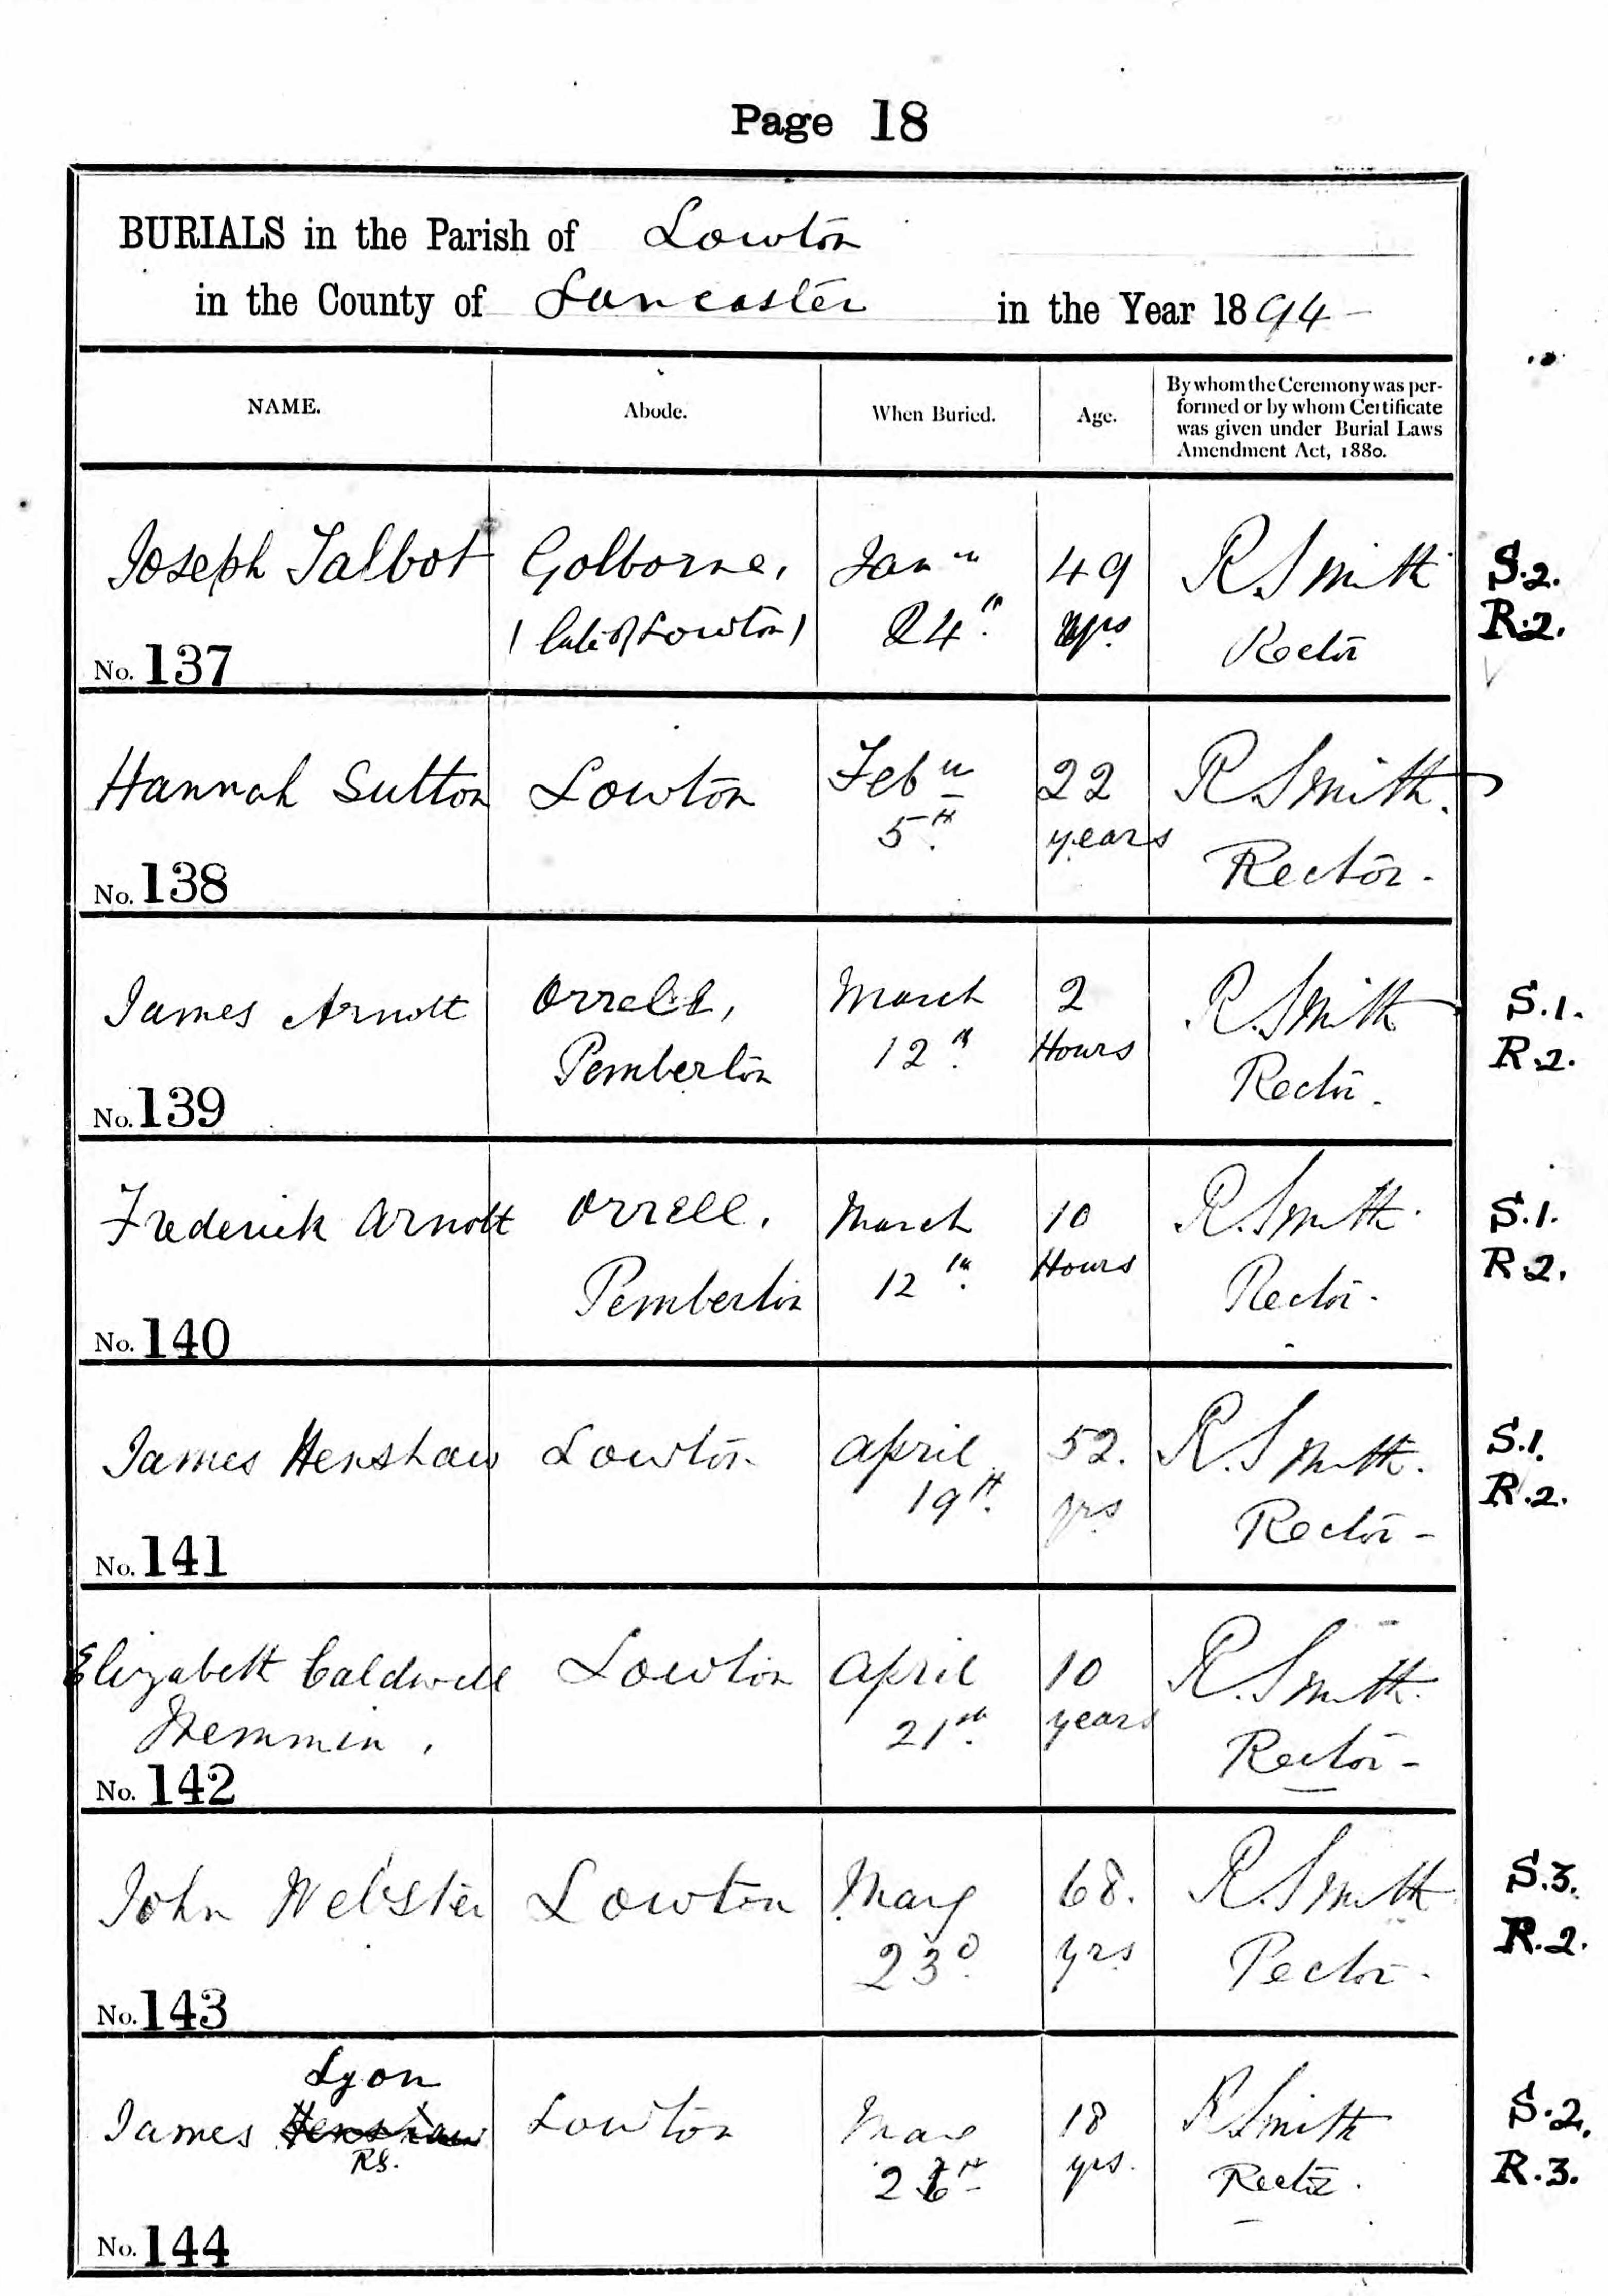 Page 18
BURIALS in the Parish of Lowton
in the County of Lancaster in the Year 1894
NAME. Abode. When Buried. Age. By whom the Ceremony was per-
formed or by whom Certificate
was given under Burial Laws
Amendment Act, 1880.
Joseph Talbot Golborne, Jan 49 R Smith S.2.
(late of Lowton) 24th yrs Rector R.2.
No. 137
Hannah Sutton Lowton Feb 22 R. Smith.
5th years Rector.
No. 138
James Arnott Orrell, March 2 R. Smith S.1.
Pemberton 12th Hours Rector. R.2.
No. 139
Frederick Arnott Orrell, March 10 R. Smith S.1.
Pemberton 12th Hours Rector. R.2.
No. 140
James Henshaw Lowton April 52. R. Smith. S.1.
19th yrs Rector R.2.
No. 141
Elizabeth Caldwell Lowton April 10 R. Smith.
21st years Rector
No. 142
John Webster Lowton May 68. R. Smith S.3.
23d yrs Rector R.2.
No. 143
Lyon
James Henshaw Lowton May 18 R Smith S.2.
RS. yrs. Rector. R.3.
No. 144